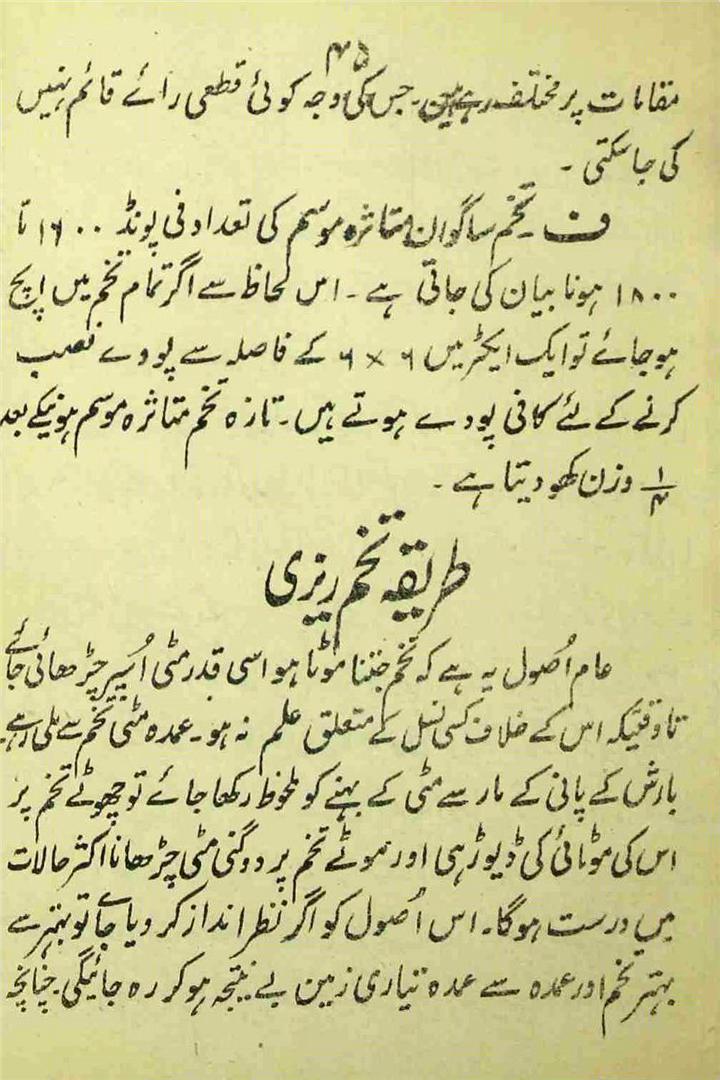 ۴۵
مقامات پر مختلف رہے ہیں۔ جس کی وجہ کوئی قطعی رائے قائم نہیں
کی جا سکتی ۔
ف ۔ تخم ساگوان متاثرہ موسم کی تعداد فی پونڈ ۱۶۰۰ تا
۱۸۰۰ ہونا بیان کی جاتی ہے ۔ اس لحاظ سے اگر تمام تخم میں اپج
ہو جائے تو ایک ایکڑ میں ۶ × ۶ کے فاصلہ سے پودے نصب
کرنے کے لئے کافی پودے ہوتے ہیں۔ تازہ تخم متاثرہ موسم ہونیکے بعد
۱/۴ وزن کھو دیتا ہے ۔
طریقہ تخم ریزی
عام اُصول یہ ہے کہ تخم جتنا موٹا ہو اسی قدر مٹی اُسپر چڑھائی جائے
تاوقتیکہ اس کے خلاف کسی نسل کے متعلق علم نہ ہو۔ عمدہ مٹی تخم سے ملی رہے۔
بارش کے پانی کے مار سے مٹی کے بہنے کو ملحوظ رکھا جائے تو چھوٹے تخم پر
اس کی موٹائی کی ڈیوڑہی اور موٹے تخم پر دوگنی مٹی چڑھانا اکثر حالات
میں درست ہوگا۔ اس اُصول کو اگر نظر انداز کر دیا جائے تو بہتر سے
بہتر تخم اور عمدہ سے عمدہ تیاری زمین بے نتیجہ ہو کر رہ جائیگی۔ چنانچہ